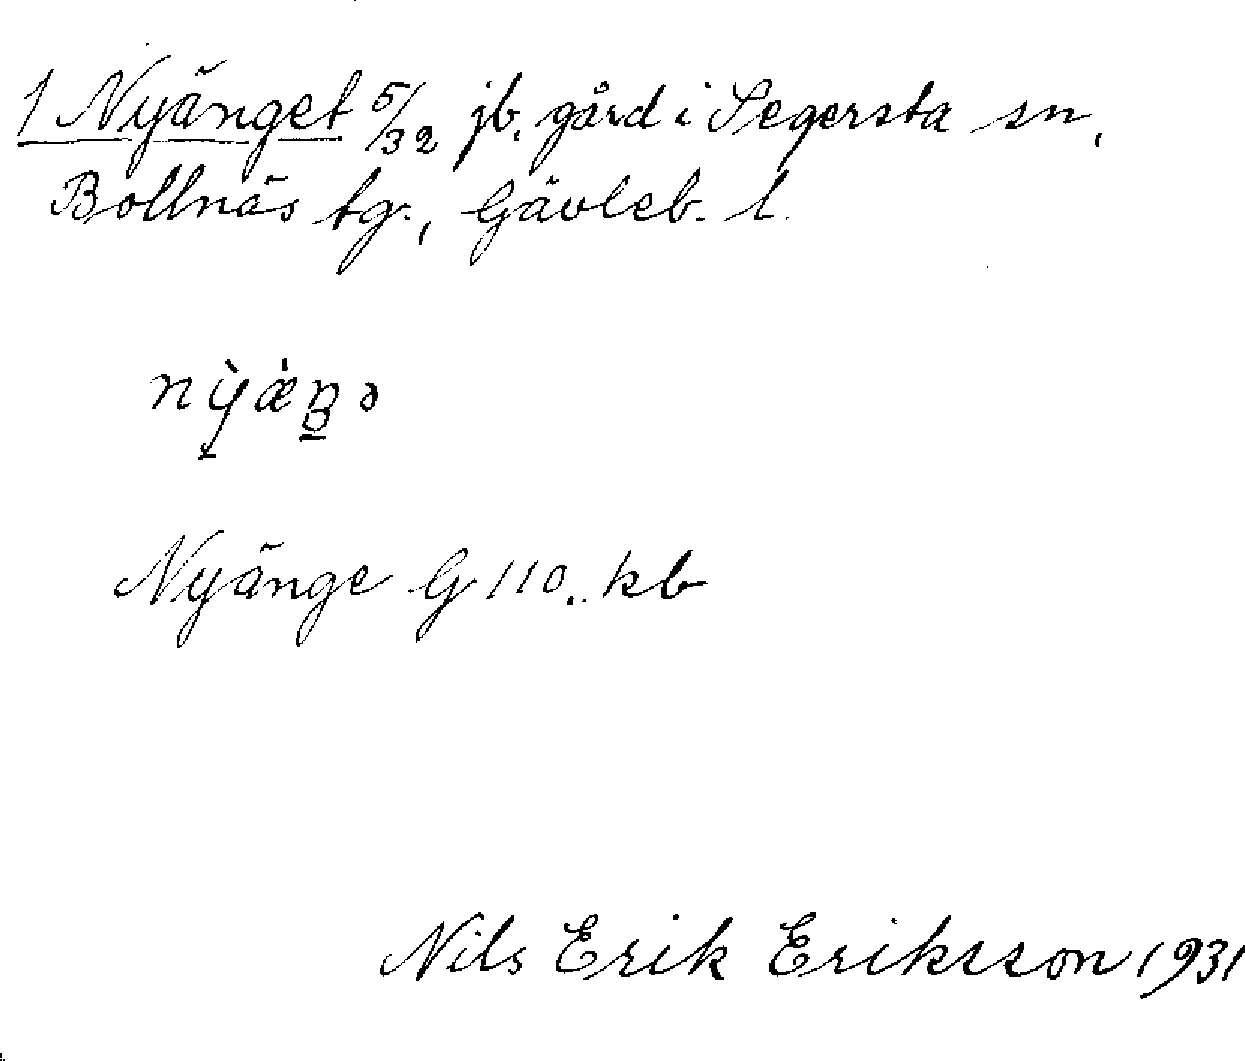 1 Nyänget 5/32 jb. gård i Segersta sn,
Bollnäs tg., Gävleb. l.
Nyänge G 110. kb
Nils Erik Eriksson 1931